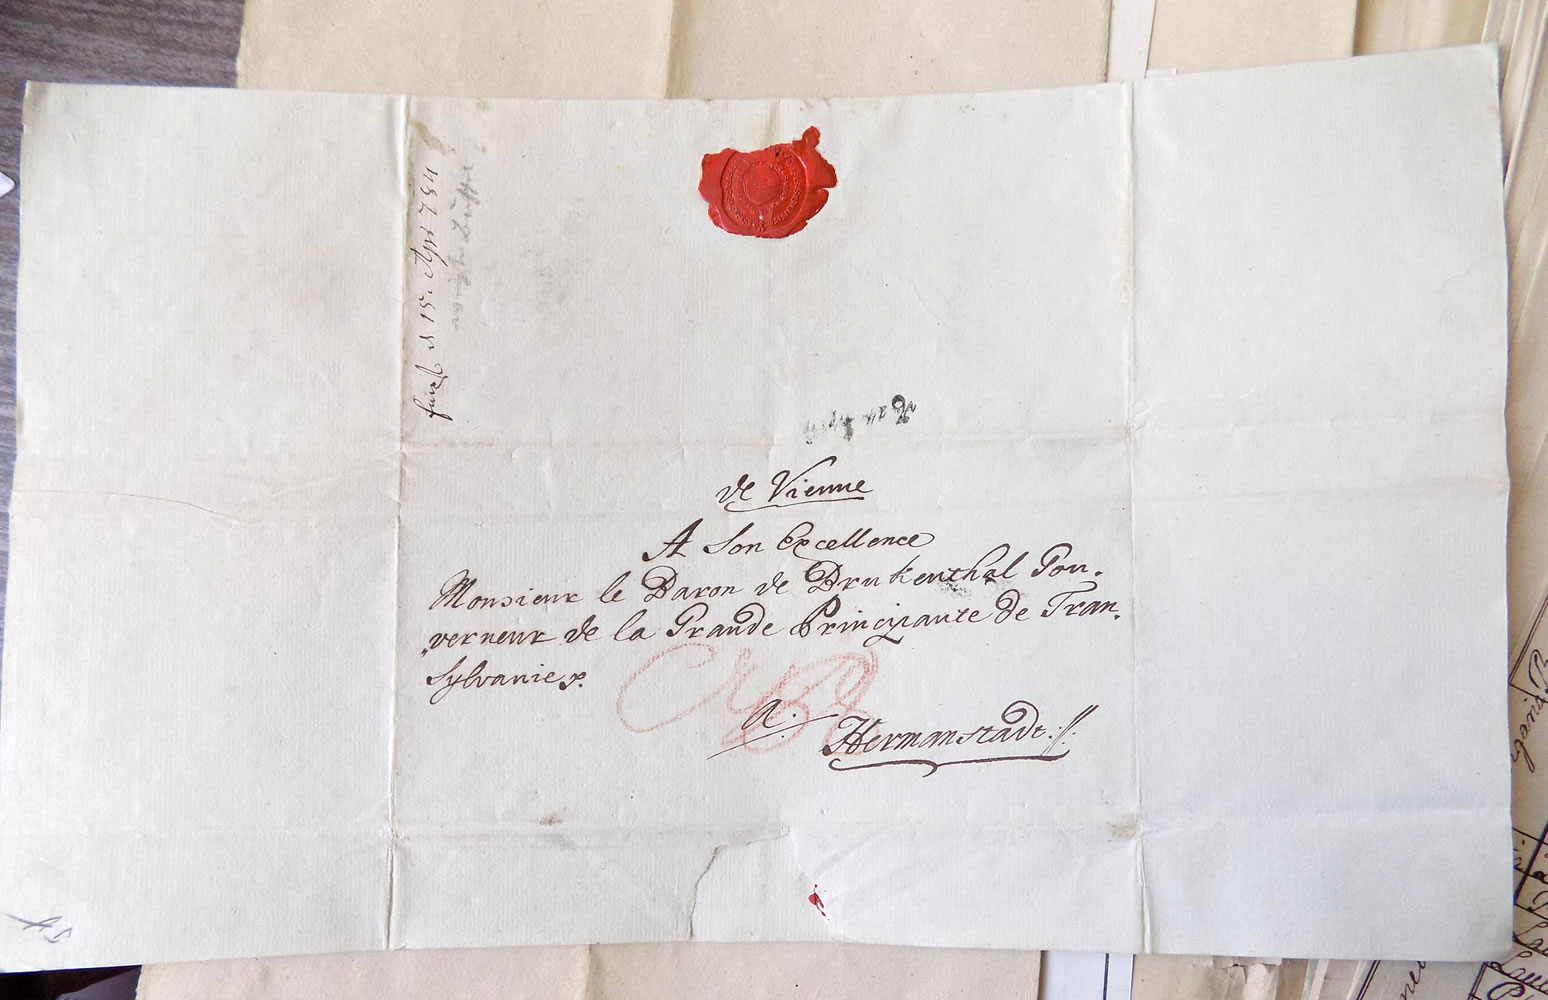 de Vienne
A Son Excellence
Monsieur le Baron de Brukenthal Gou-
verneur de la Grande Principaute de Tran-
sylvanie p.
a. Hermanstadt.
15. Apr 784